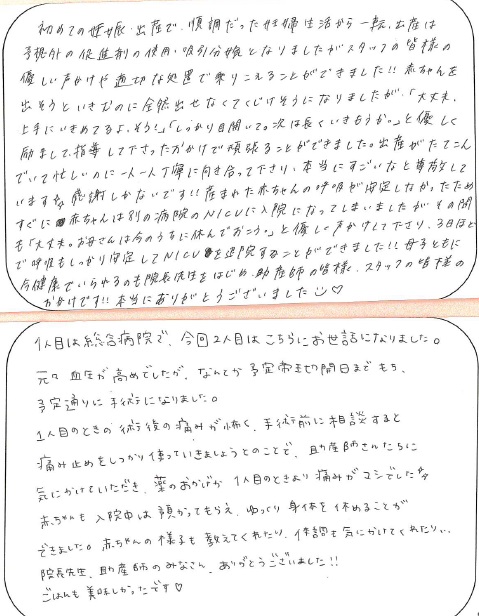 初めての妊娠・出産で、順調だった妊婦生活から一転、出産は
予想外の促進剤の使用・吸引分娩となりましたがスタッフの皆様の
優しい声かけや適切な処置で乗りこえることができました!! 赤ちゃんを
出そうといきむのに全然出せなくてくじけそうになりましたが、「大丈夫。
上手にいきめてるよ、そう!」「しっかり目開いて。次は長くいきもうか。」と優しく
励まして、指導して下さったおかげで頑張ることができました。出産がたてこん
でいて忙しいのに一人一人丁寧に向き合って下さり、本当にすごいなと尊敬して
います。感謝しかないです!! 産まれた赤ちゃんの呼吸が安定しなかったため
すぐに赤ちゃんは別の病院のNICUに入院になってしまいましたがその間
も「大丈夫。お母さんは今のうちに休んでおこう。」と優しく声かけして下さり、3日ほど
で呼吸もしっかり安定してNICUを退院することができました!! 母子ともに
今健康でいられるのも院長先生をはじめ、助産師の皆様、スタッフの皆様の
おかげです!! 本当にありがとうございました♡
1人目は総合病院で、今回2人目はこちらにお世話になりました。
元々血圧が高めでしたが、なんとか予定帝王切開日までもち、
予定通りに手術になりました。
1人目のときの術後の痛みが怖く、手術前に相談すると
痛み止めをしっかり使っていきましょうとのことで、助産師さんたちに
気にかけていただき、薬のおかげか1人目のときより痛みがマシでした
赤ちゃんも入院中は預かってもらえ、ゆっくり身体を休めることが
できました。赤ちゃんの様子も教えてくれたり、体調も気にかけてくれたり、、
院長先生、助産師のみなさん、ありがとうございました!!
ごはんも美味しかったです♡